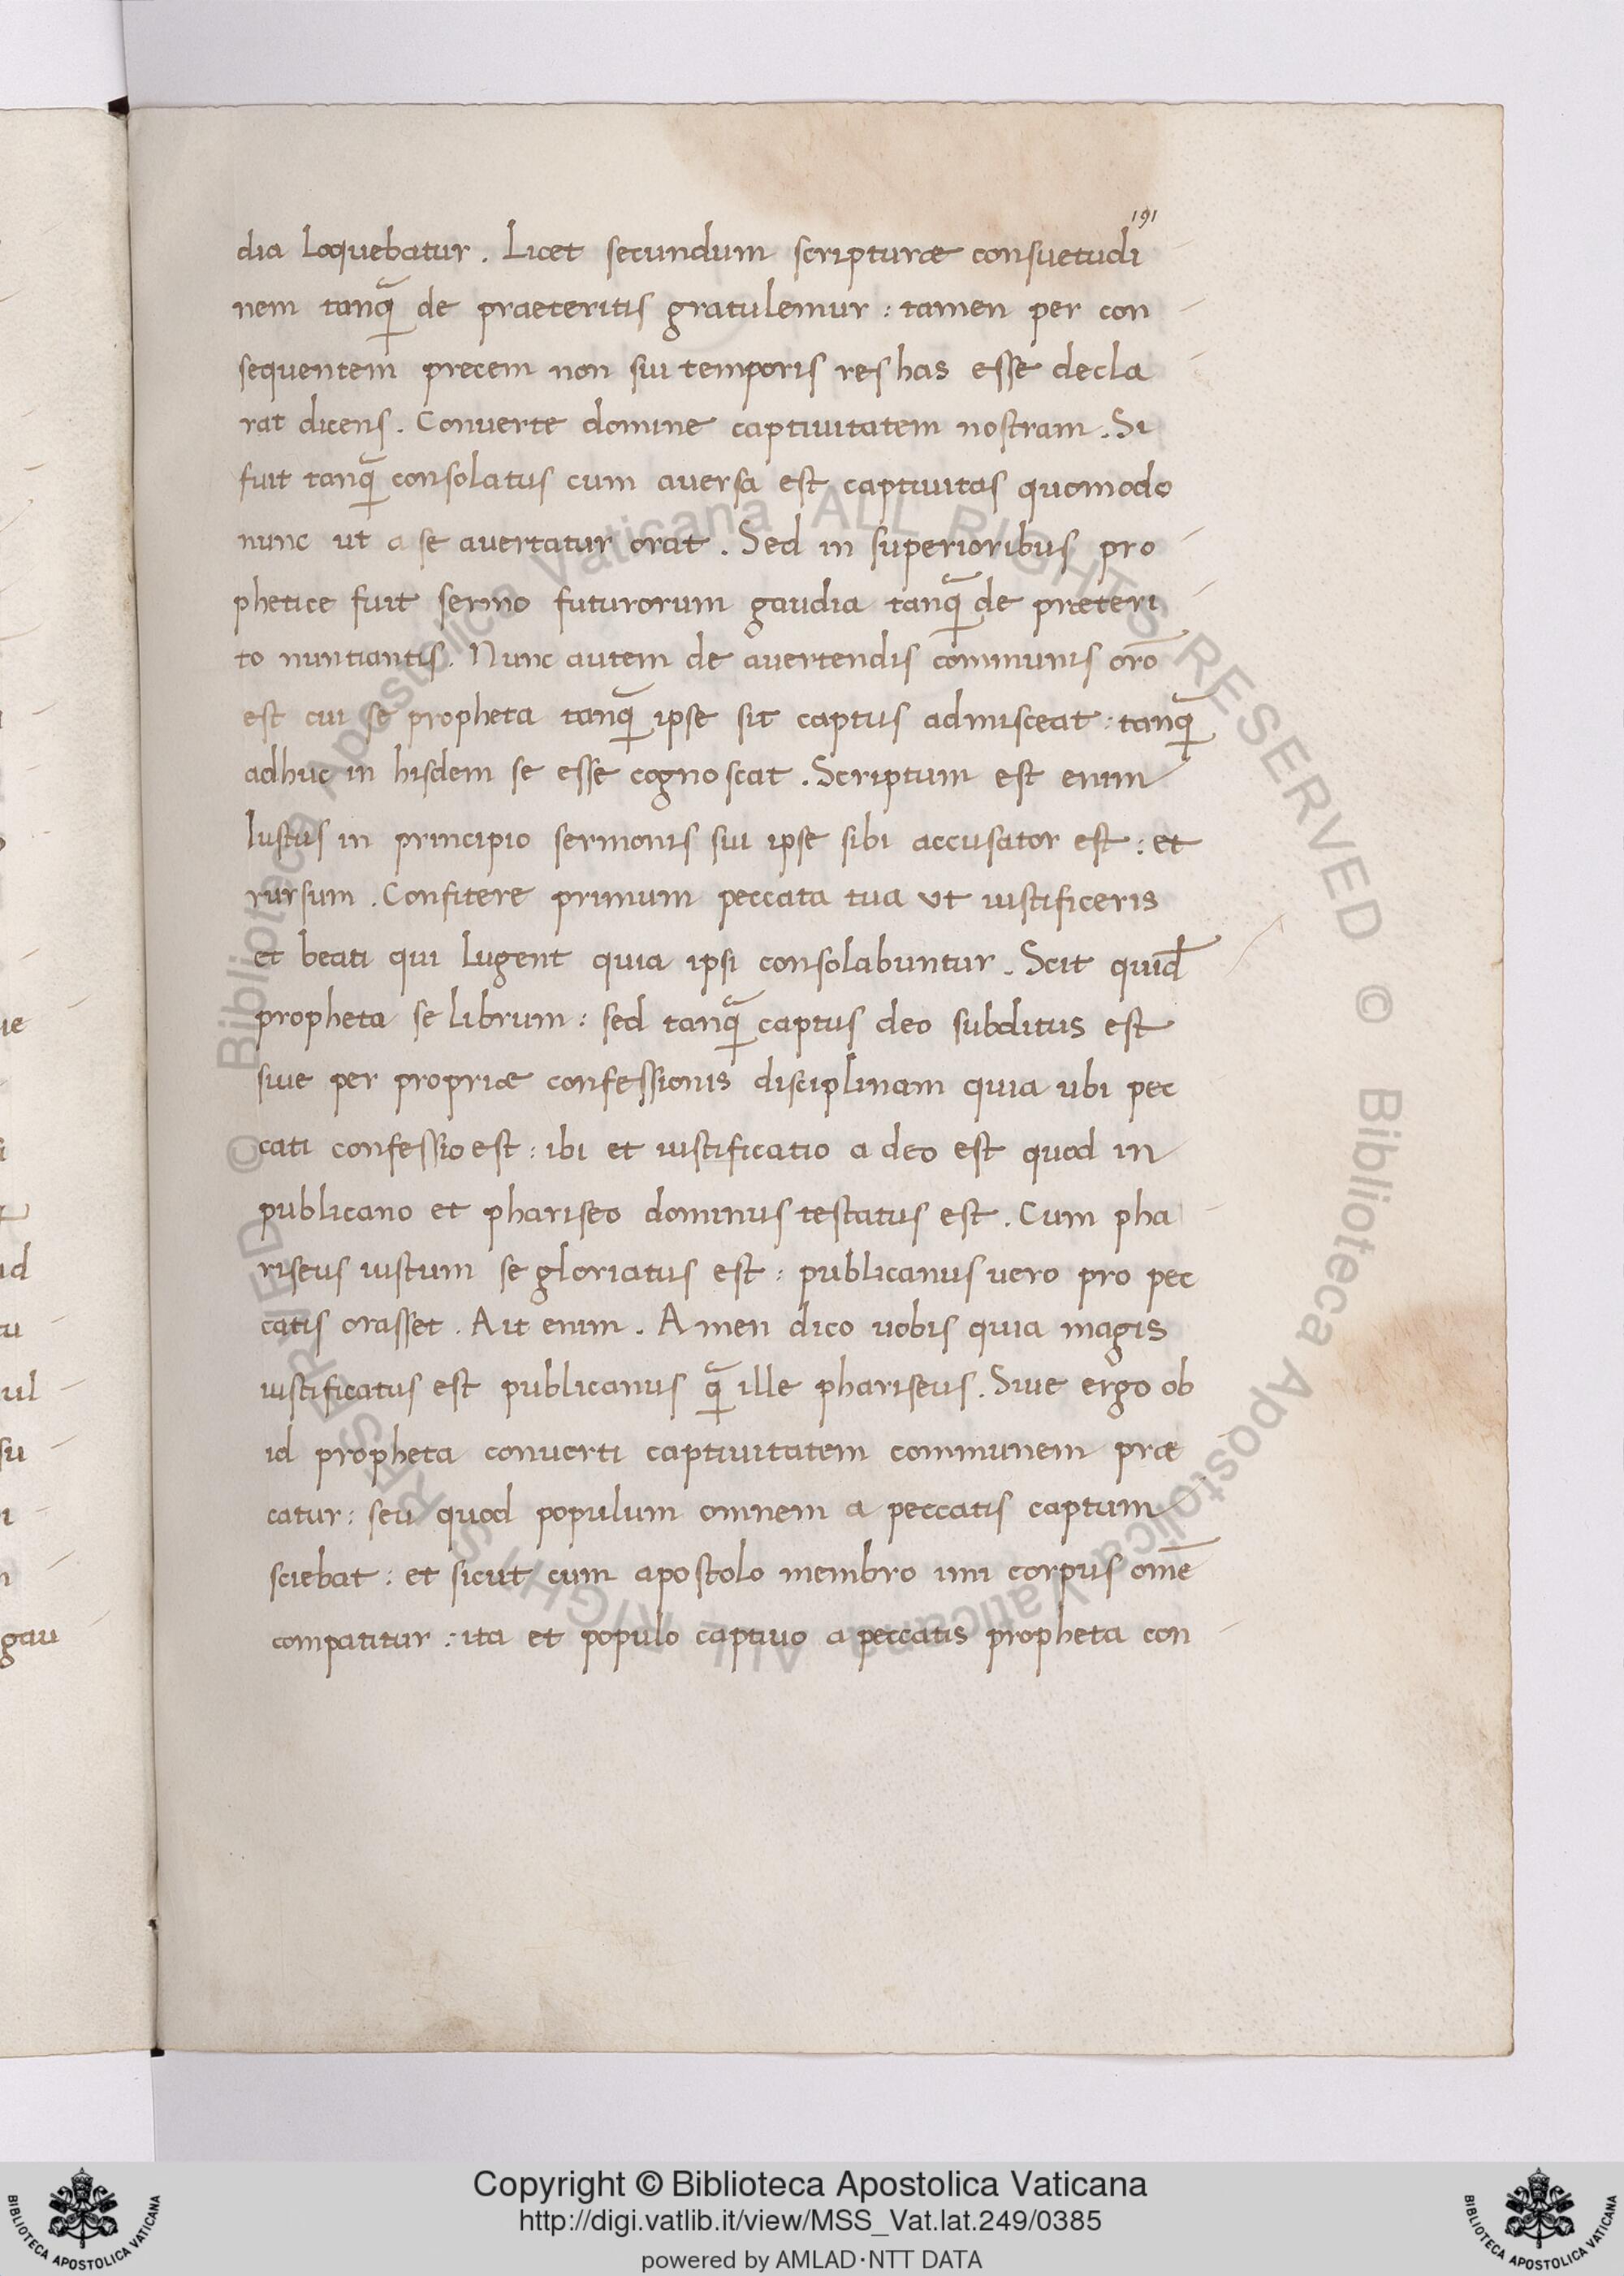 191
dia loquebatur. Licet secundum scripturæ consuetudi
nem tanꝙ̃ de praeteritis gratulemur: tamen per con
sequentem precem non sui temporis res has esse decla
rat dicens. Converte domine captiuitatem nostram. Si
fuit tanꝙ̃ consolatus cum aversa est captiuitas quomodo
nunc ut a se auertatur orat. Sed in superioribus pro
phetice fuit sermo futurorum gaudia tanꝙ̃ de præteri
to nuntiantis. Nunc autem de auertendis communis orõ
est cui se propheta tanꝙ̃ ipse sit captus admisceat: tanꝙ̃
adhuc in hisdem se esse cognoscat. Scriptum est enim
Iustus in principio sermonis sui ipse sibi accusator est: et
rursum. Confitere primum peccata tua ut iustificeris
et beati qui lugent quia ipsi consolabuntur. Scit quid̃
propheta se librum: sed tanꝙ̃ captus deo subditus est
siue per propriæ confessionis disciplinam quia ubi pec
cati confessio est: ibi et iustificatio a deo est quod in
publicano et phariseo dominus testatus est. Cum pha
riseus iustum se gloriatus est: publicanus uero pro pec
catis orasset. Ait enim. Amen dico uobis quia magis
iustificatus est publicanus ꝙ̃ ille phariseus. Siue ergo ob
id propheta conuerti captiuitatem communem præ
catur: seu quod populum omnem a peccatis captum
sciebat: et sicut cum apostolo membro uni corpus omē
compatitur: ita et populo captiuo a peccatis propheta con
ie
id
tu
ul
su
gau
© Biblioteca Apostolica Vaticana ALL RIGHTS RESERVED © Biblioteca Apostolica Vaticana ALL RIGHTS RESERVED
Copyright © Biblioteca Apostolica Vaticana
http://digi.vatlib.it/view/MSS_Vat.lat.249/0385
powered by AMLAD·NTT DATA
BIBLIOTECA APOSTOLICA VATICANA
BIBLIOTECA APOSTOLICA VATICANA